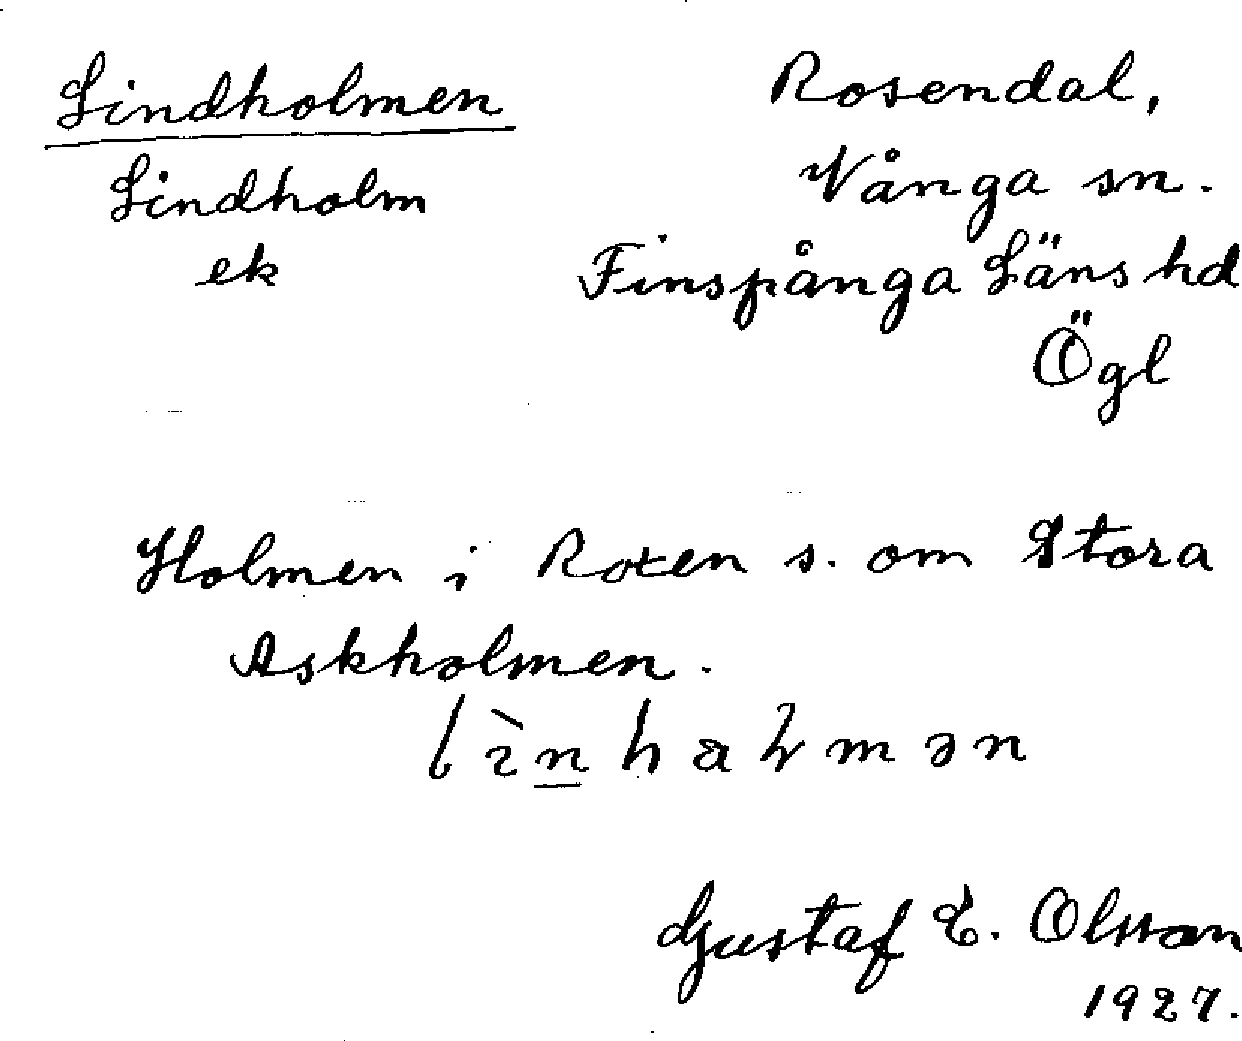 Lindholmen
Lindholm
ek
Rosendal,
Vånga sn.
Finspånga Läns hd
Ögl
Holmen i Roxen s. om Stora
Askholmen.
Gustaf E. Olsson
1927.